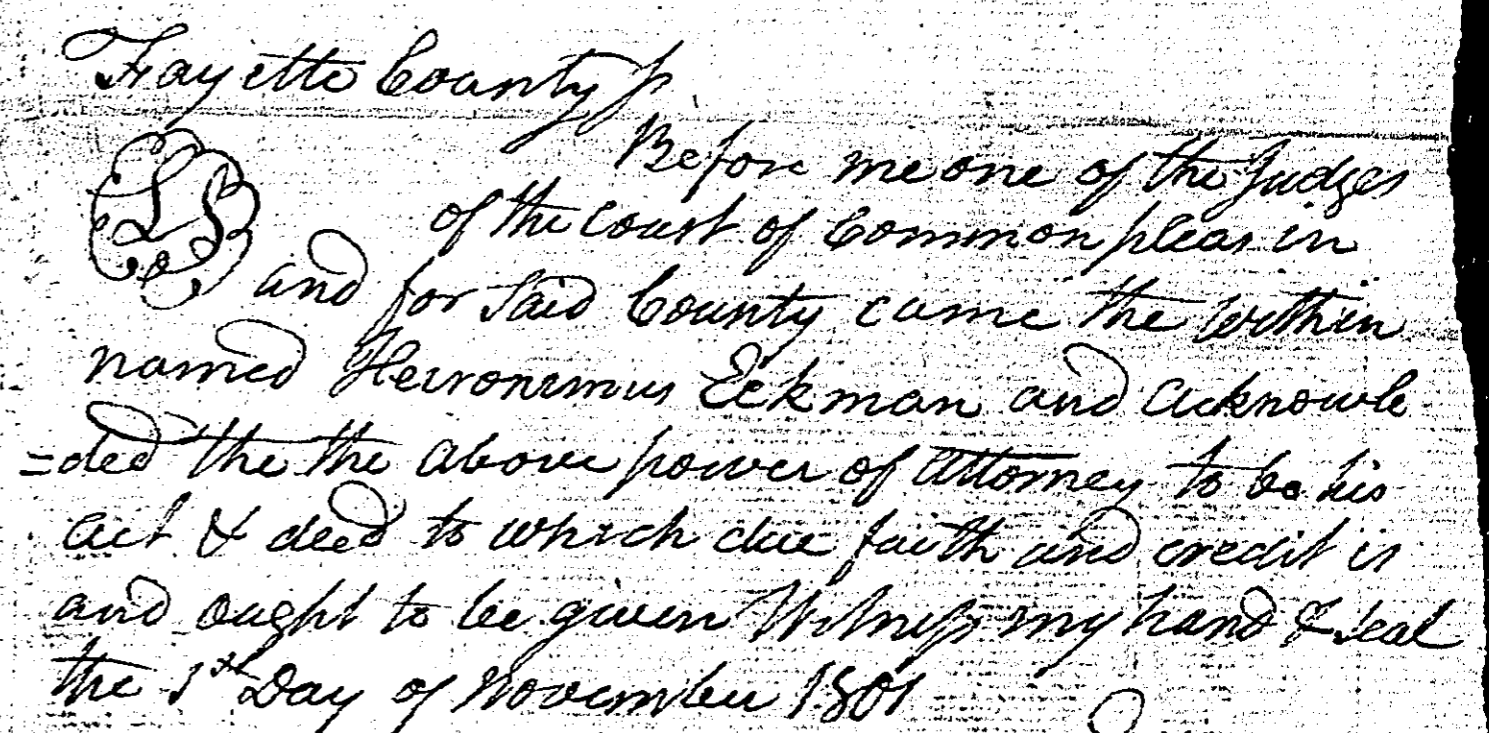 Fayette County ss
Before me one of the Judges
LS
of the Court of Common pleas in
and for Said County came the within
named Heironimus Eckman and acknowle
=ded the the above power of attorney to be his
act & deed to which due faith and credit is
and ought to be given Witness my hand & seal
the 1st Day of November 1801